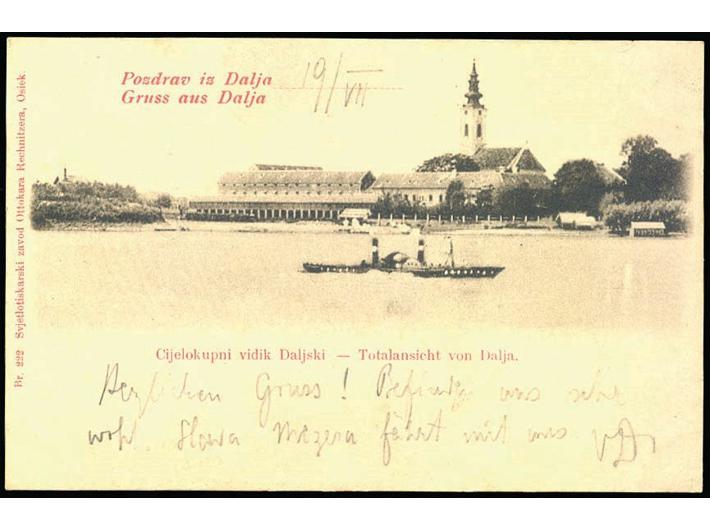 Pozdrav iz Dalja
Gruss aus Dalja
19/VII
Br. 222 Svjetlotiskarski zavod Ottokara Rechnitzera, Osiek.
Cijelokupni vidik Daljski — Totalansicht von Dalja.
Herzlichen Gruss! Befinden uns sehr
wohl. fährt mit uns